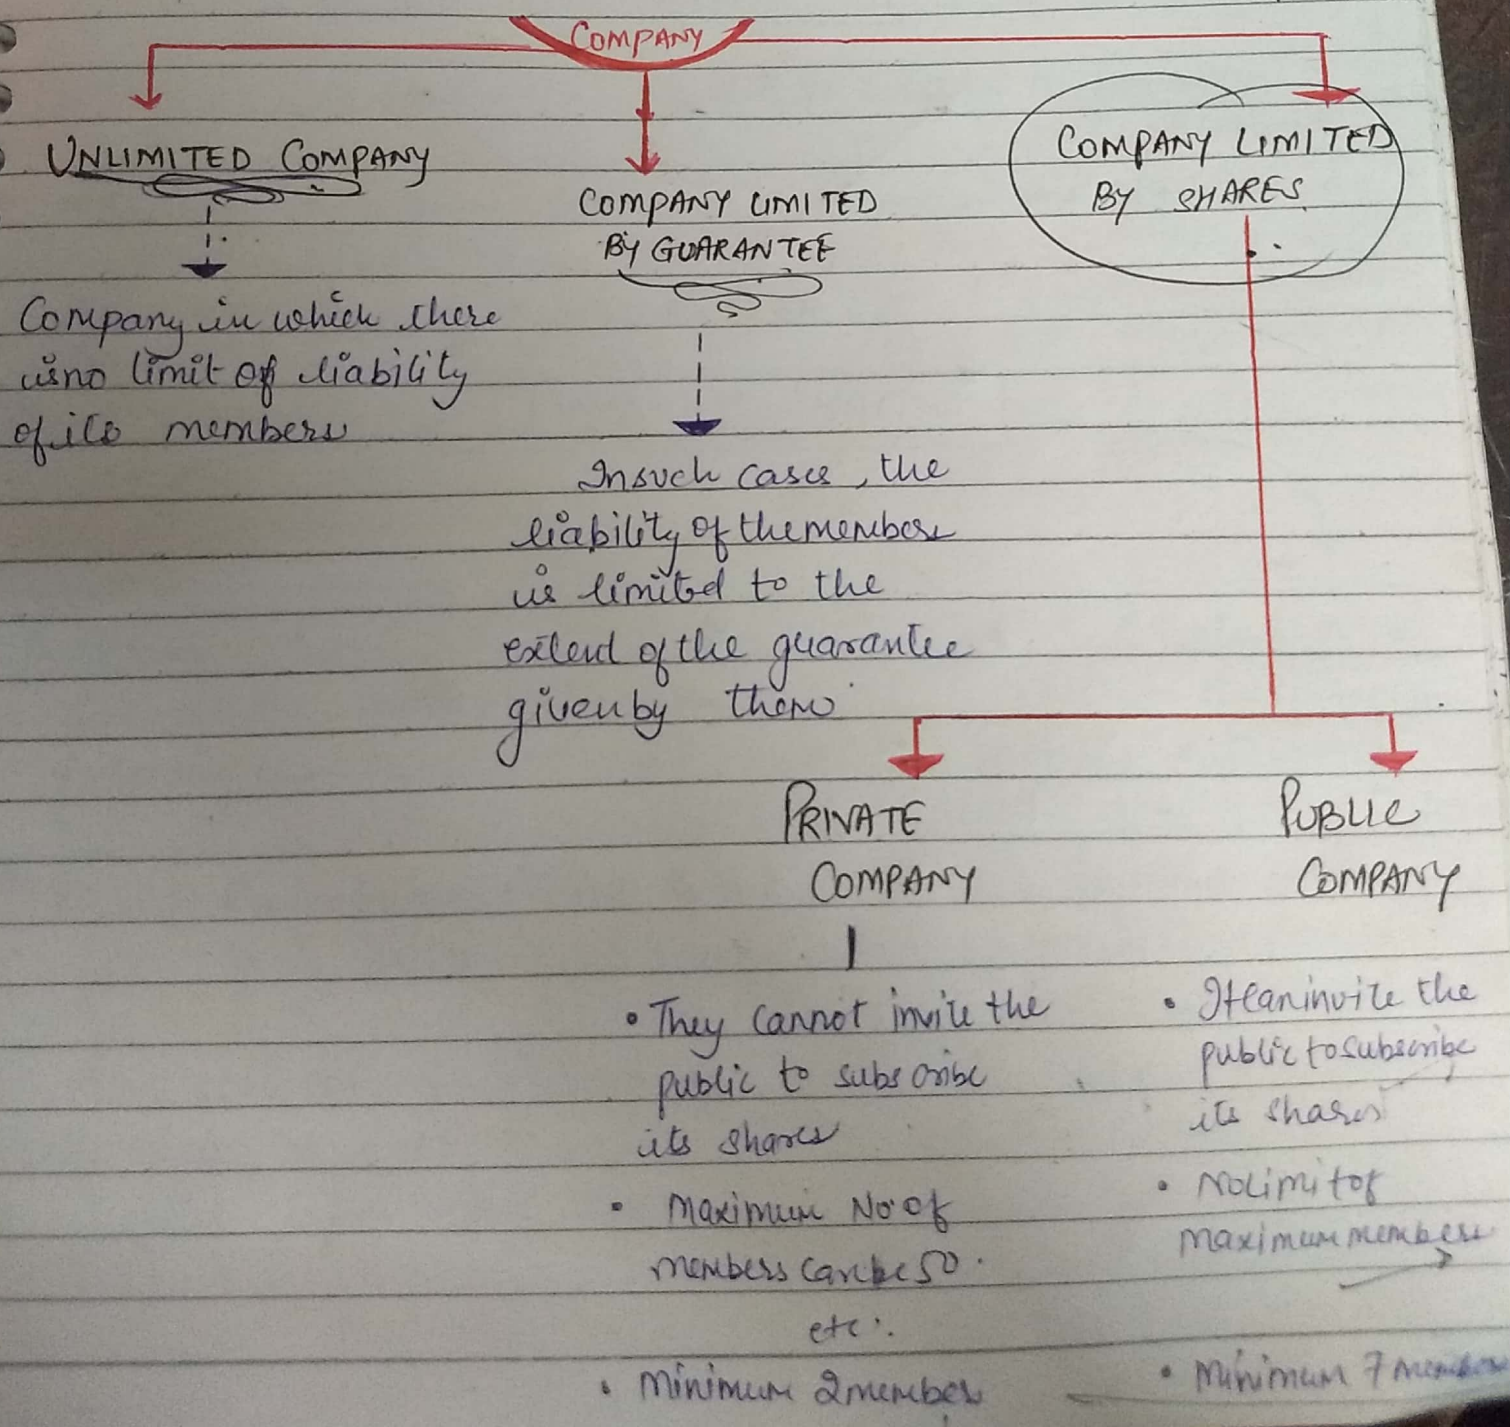 COMPANY
UNLIMITED COMPANY
Company in which there
is no limit of liability
of its members
COMPANY LIMITED
BY GUARANTEE
In such cases, the
liability of the members
is limited to the
extent of the guarantee
given by them
COMPANY LIMITED
BY SHARES
PRIVATE
COMPANY
• They cannot invite the
public to subscribe
its shares
• Maximum No. of
members can be 50.
etc.
• Minimum 2 members
PUBLIC
COMPANY
• It can invite the
public to subscribe
its shares
• No limit of
maximum members
• Minimum 7 members